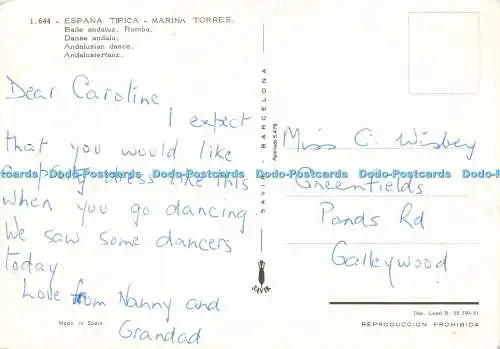 1.644 - ESPAÑA TIPICA - MARINA TORRES.
Baile andaluz. Rumba.
Danse andalu.
Andalusian dance.
Andalusiertanz.
Dear Caroline
I expect
that you would like
a frilly dress like this
when you go dancing
We saw some dancers
today.
Love from Nanny and
Grandad
Made in Spain
SAVIR - BARCELONA
Apartado 5.475
SAVIR
Miss C. Wisbey
Greenfields
Ponds Rd
Galleywood
Dep. Legal B. 28.730-XI
REPRODUCCION PROHIBIDA
Dodo-Postcards Dodo-Postcards Dodo-Postcards Dodo-Postcards Dodo-Postcards